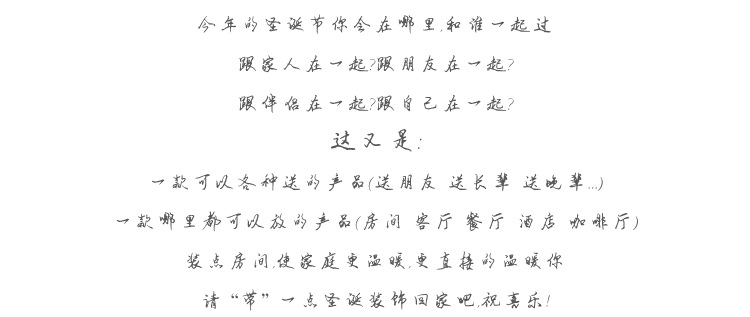 今年的圣诞节你会在哪里,和谁一起过
跟家人在一起?跟朋友在一起?
跟伴侣在一起?跟自己在一起?
这又是:
一款可以各种送的产品(送朋友 送长辈 送晚辈...)
一款哪里都可以放的产品(房间 客厅 餐厅 酒店 咖啡厅)
装点房间,使家庭更温暖,更直接的温暖你
请“带”一点圣诞装饰回家吧,祝喜乐!